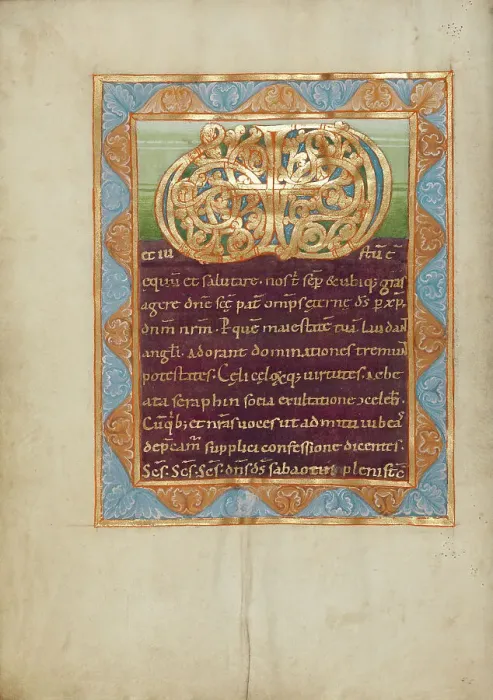 et iu stū ē
equū et salutare. nos t̄ sēp & ubiq; gras
agere dn̄e sc̄e pat̄ omp̄s eterne ds̄ p xp̄m
dnm nrm. P quē maiestatē tuā laudant
angli. adorant dominationes tremunt
potestates. Celi celoxq; uirtutes. ac be
ata seraphin socia exultatione ɔcelebr̄.
Cū qb; et nr̄as uoces ut admitti iubeas
depcam̄ supplici confessione dicentes.
Scs̄. Scs̄. Scs̄. dn̄s ds̄ sabaoth pleni st̄ c̄